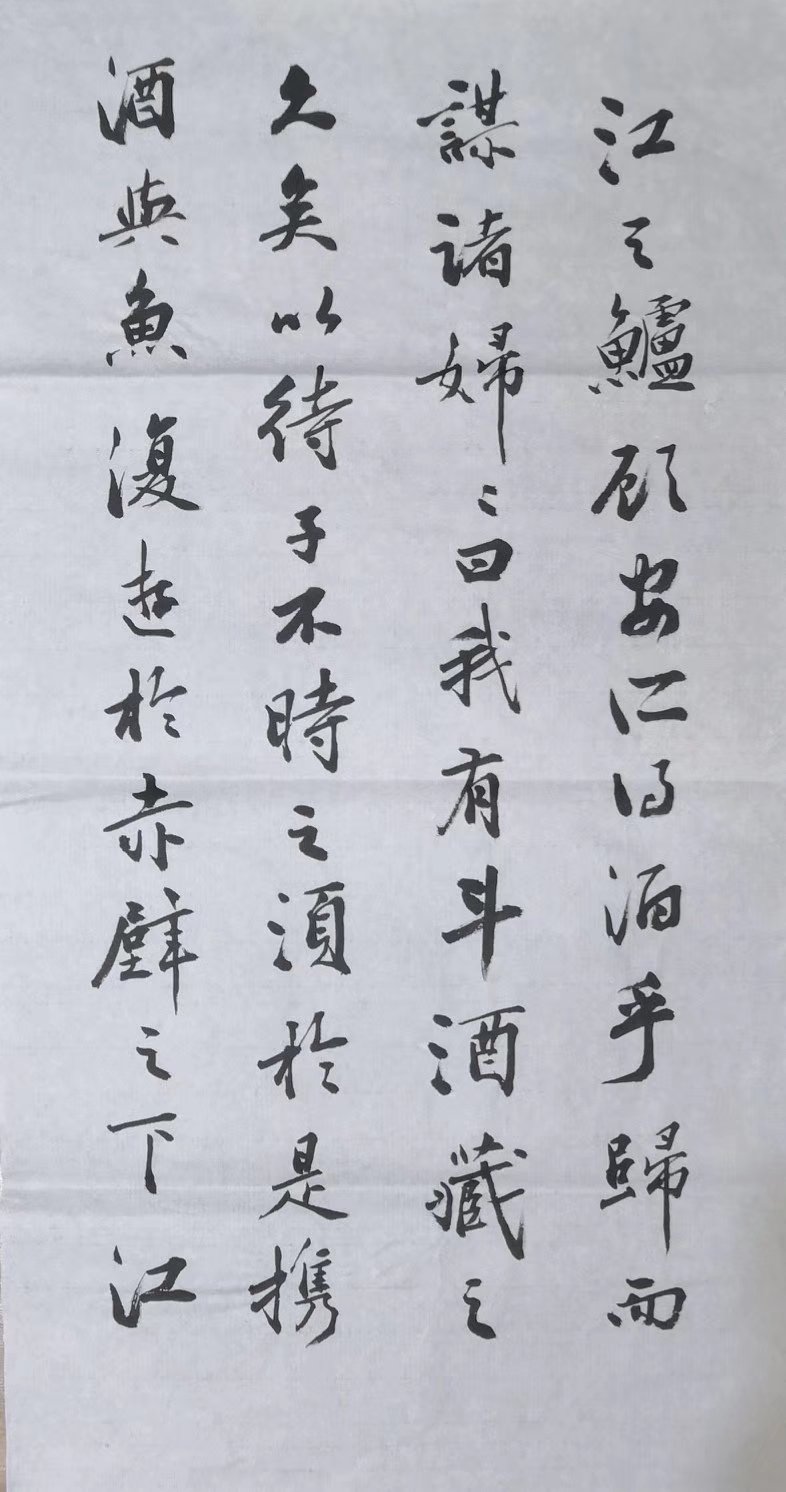 江之鱸顾安所得酒乎歸而
謀諸婦〻曰我有斗酒藏之
久矣以待子不時之湏於是携
酒與魚復遊於赤壁之下江